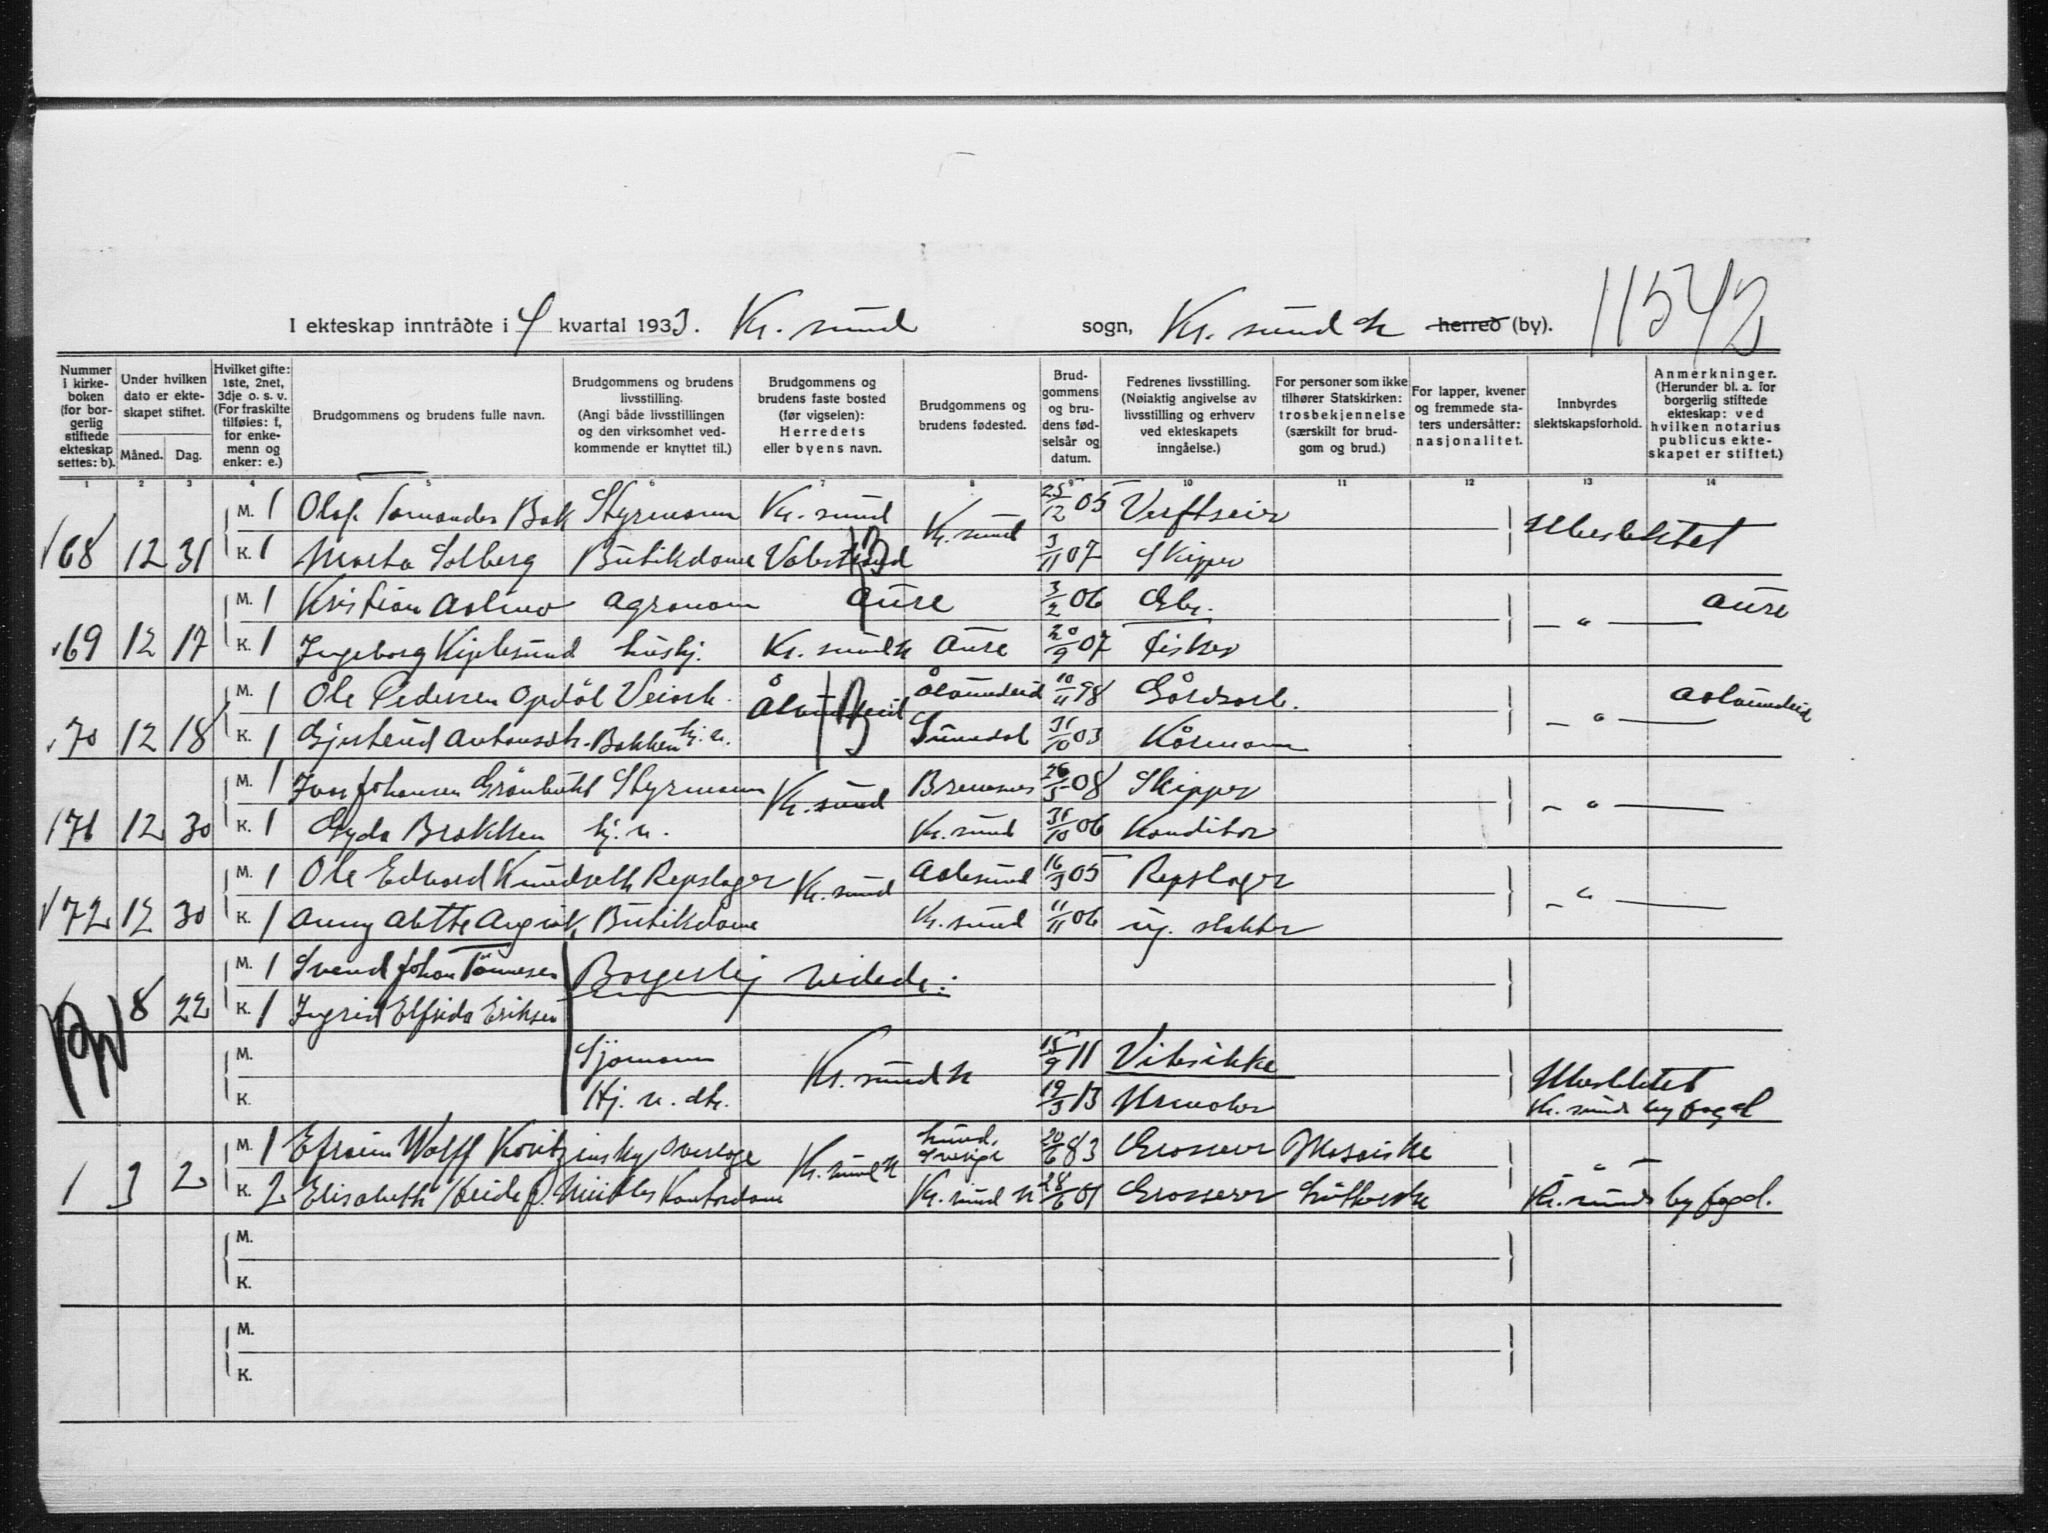 I ekteskap inntrådte i 4 kvartal 1933. Kr. sund sogn, Kr. sund N herred (by). 11542
Nummer i kirkeboken (for borgerlig stiftede ekteskap settes: b).
Under hvilken dato er ekteskapet stiftet.
Måned. Dag.
Hvilket gifte: 1ste, 2net, 3dje o. s. v. (For fraskilte tilføies: f, for enkemenn og enker: e.)
Brudgommens og brudens fulle navn.
Brudgommens og brudens livsstilling. (Angi både livsstillingen og den virksomhet vedkommende er knyttet til.)
Brudgommens og brudens faste bosted (før vigselen): Herredets eller byens navn.
Brudgommens og brudens fødested.
Brudgommens og brudens fødselsår og datum.
Fedrenes livsstilling. (Nøiaktig angivelse av livsstilling og erhverv ved ekteskapets inngåelse.)
For personer som ikke tilhører Statskirken: trosbekjennelse (særskilt for brudgom og brud.)
For lapper, kvener og fremmede staters undersåtter: nasjonalitet.
Innbyrdes slektskapsforhold.
Anmerkninger. (Herunder bl. a. for borgerlig stiftede ekteskap: ved hvilken notarius publicus ekteskapet er stiftet.)
1 2 3 4 5 6 7 8 9 10 11 12 13 14
M. 1 Olaf Bak Styrmann Kr. sund Kr. sund 25/12 05 Verftseier
168 12 31 K. 1 Marta Solberg Butikdame 3/11 07 Skipper Ubeslektet
M. 1 Kristian Aalmo Agronom Aure 3/2 06 Gbr. Aure
169 12 17 K. 1 Ingeborg Kjelesund Hushj. Kr. sund N Aure 20/9 07 Fisker — " —
M. 1 Ole Pedersen Opdøl Veiarb. Ålvundeid Ålvundeid 10/11 98 Gårdsarb. Aalvundeid
170 12 18 K. 1 Antonsdtr. Bakken Hj. v. Sunndal 31/10 03 Kårmann — " —
M. 1 Ivar Johansen Grønbukt Styrmann Kr. sund Bremsnes 26/5 08 Skipper
171 12 30 K. 1 Gyda Brokken Hj. v. Kr. sund 31/10 06 Konditor — " —
M. 1 Ole Edvard Knudseth Repslager Kr. sund Aalesund 16/3 05 Repslager
172 12 30 K. 1 Anny Alette Angvik Butikdame Kr. sund 11/11 06 slakter — " —
M. 1 Svend Johan Tønnesen Borgerlig viede:
8 22 K. 1 Ingrid Elfrida Eriksen
M. Sjømann Kr. sund N 15/9 11 Vites ikke
K. Hj. v. dtr. 19/3 13 Urmaker Ubeslektet Kr. sunds byfogd
M. 1 Efraim Wolff Koritzinsky Overlæge Kr. sund N Lund, Sverige 20/6 83 Grosserer Mosaiske — " —
1 3 2 K. 2 Elisabeth Kontordame Kr. sund N 28/6 01 Grosserer Lutherske Kr. sunds byfogd.
M.
K.
M.
K.